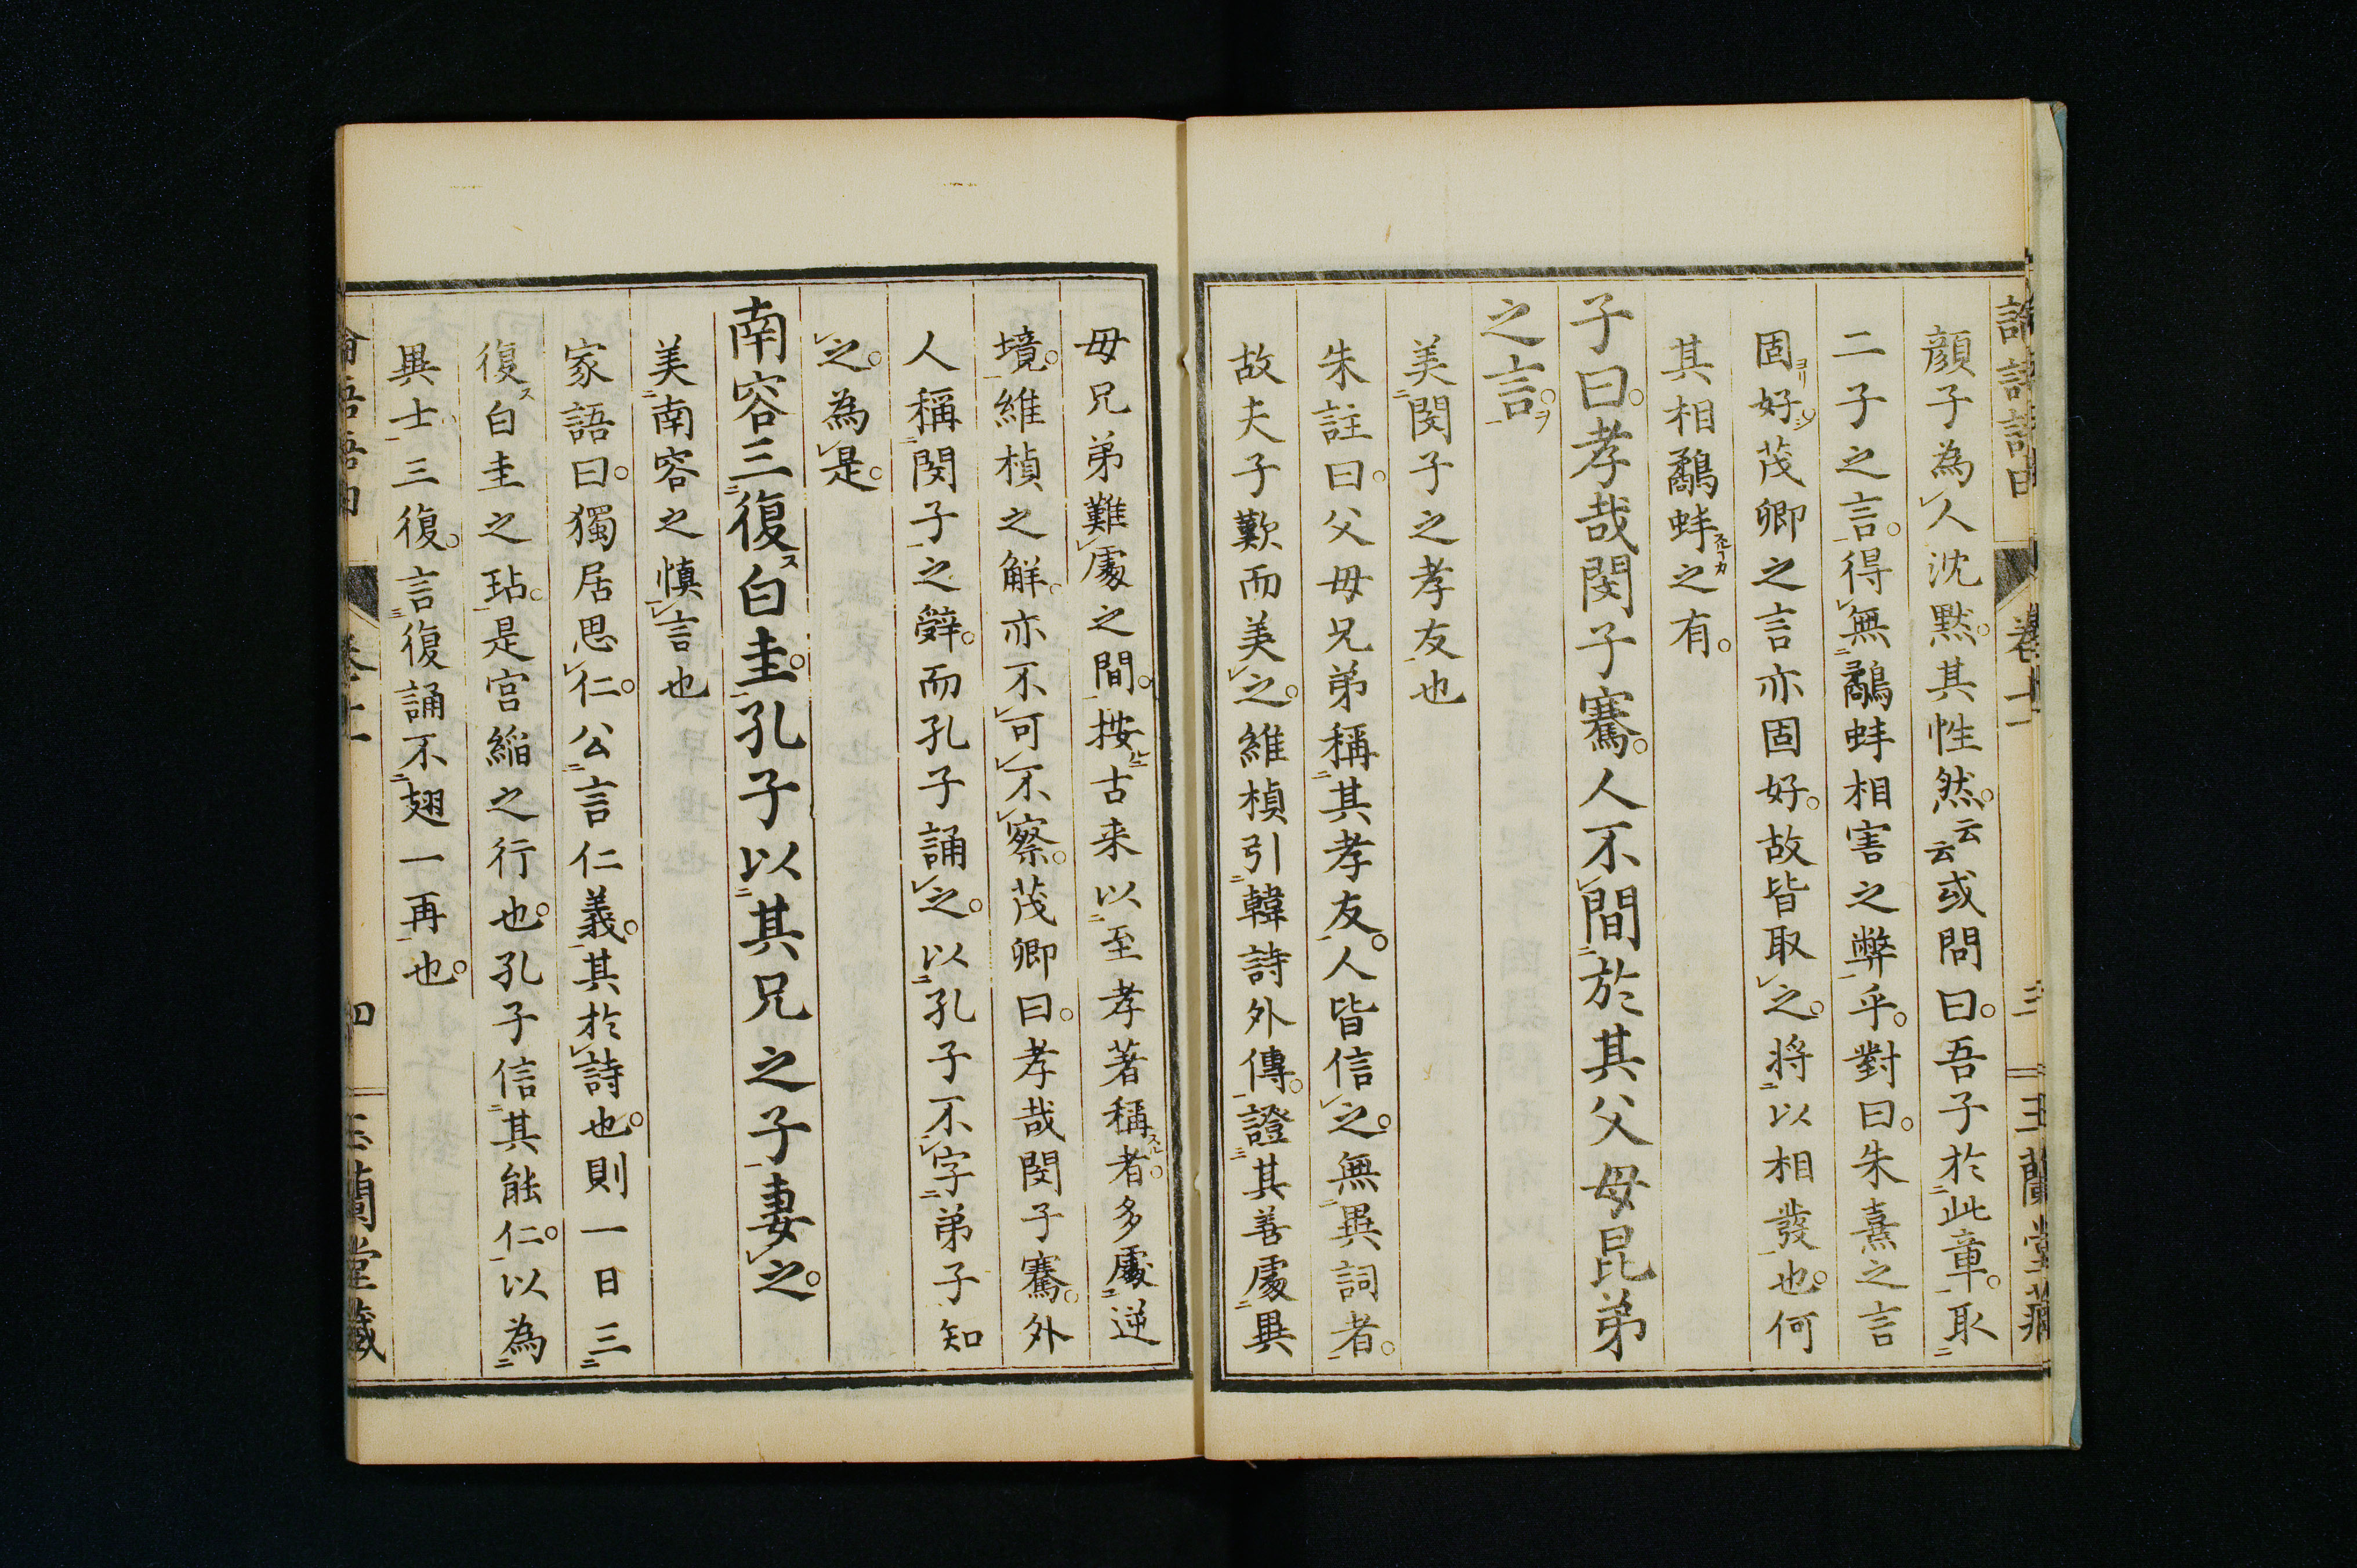 顔子為人沈黙其性然云云或問曰吾子於此章取
二子之言得無鷸蚌相害之弊乎對曰朱熹之言
固好茂卿之言亦固好故皆取之将以相發也何
其相鷸蚌之有
子曰孝哉閔子騫人不間於其父母昆弟
之言
美閔子之孝友也
朱註曰父母兄弟稱其孝友人皆信之無異詞者
故夫子歎而美之維楨引韓詩外傳證其善處異
母兄弟難處之間按古来以至孝著稱者多處逆
境維楨之解亦不可不察茂卿曰孝哉閔子騫外
人稱閔子之辤而孔子誦之以孔子不字弟子知
之為是
南容三復白圭孔子以其兄之子妻之
美南容之慎言也
家語曰獨居思仁公言仁義其於詩也則一日三
復白圭之玷是宮縚之行也孔子信其能仁以為
異士三復言復誦不翅一再也
卷十一
四
玉蘭堂藏